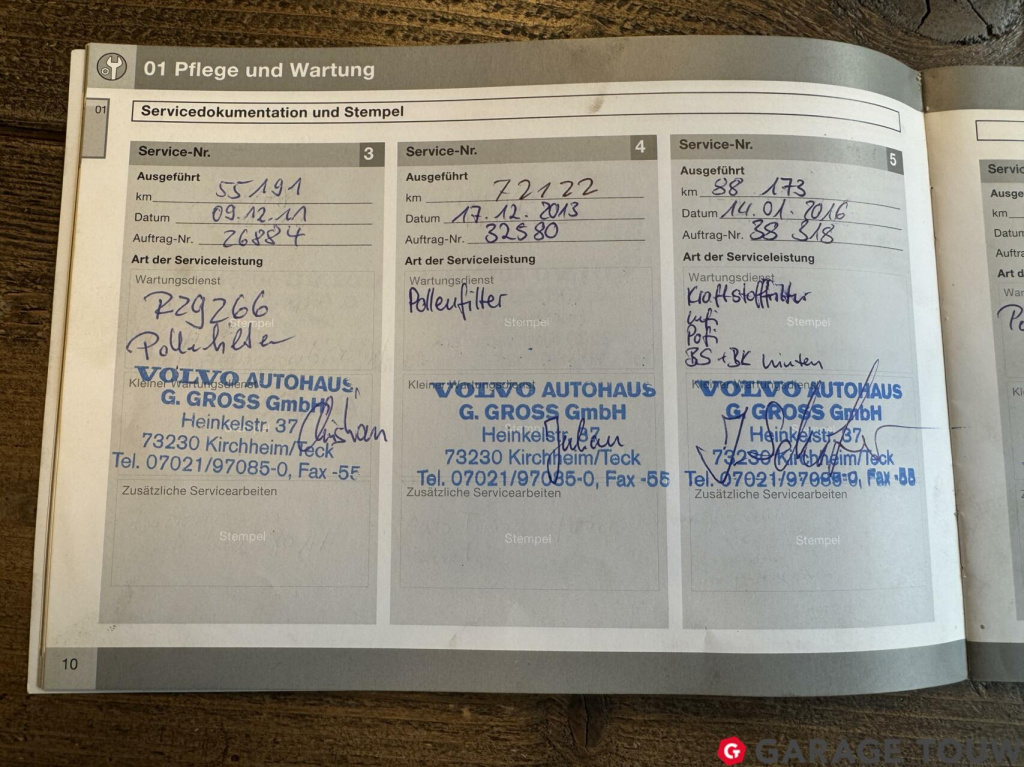 01 Pflege und Wartung
01
Servicedokumentation und Stempel
Service-Nr. 3
Ausgeführt
km 55191
Datum 09.12.11
Auftrag-Nr. 26884
Art der Serviceleistung
Wartungsdienst
RZg266
Stempel
Pollenfilter
Kleiner Wartungsdienst
VOLVO AUTOHAUS
G. GROSS GmbH
Heinkelstr. 37
73230 Kirchheim/Teck
Tel. 07021/97085-0, Fax -55
Zusätzliche Servicearbeiten
Stempel
Service-Nr. 4
Ausgeführt
km 72122
Datum 17.12.2013
Auftrag-Nr. 32580
Art der Serviceleistung
Wartungsdienst
Pollenfilter
Stempel
Kleiner Wartungsdienst
VOLVO AUTOHAUS
G. GROSS GmbH
Heinkelstr. 37
73230 Kirchheim/Teck
Tel. 07021/97085-0, Fax -55
Zusätzliche Servicearbeiten
Stempel
Service-Nr. 5
Ausgeführt
km 88 173
Datum 14.01.2016
Auftrag-Nr. 38 318
Art der Serviceleistung
Wartungsdienst
Kraftstofffilter
Stempel
Lufi
Pofi
BS + BK hinten
Kleiner Wartungsdienst
VOLVO AUTOHAUS
G. GROSS GmbH
Heinkelstr. 37
73230 Kirchheim/Teck
Tel. 07021/97085-0, Fax -55
Zusätzliche Servicearbeiten
Stempel
10
GARAGE TOUW